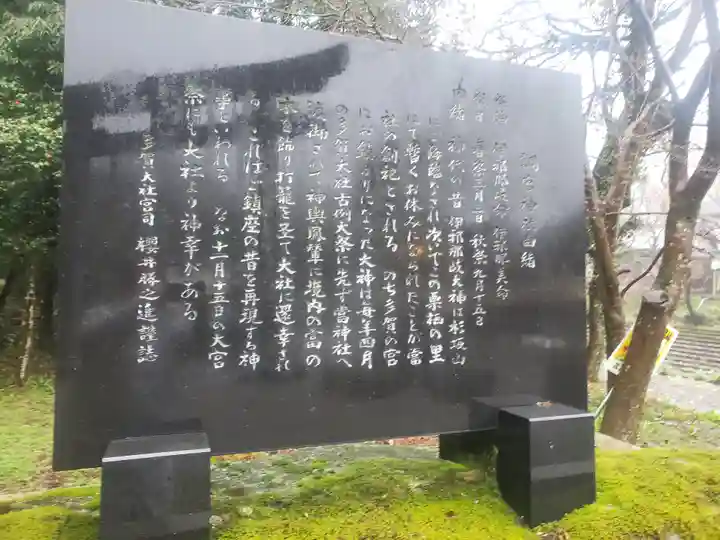 調宮神社由緒
祭神 伊邪那岐命 伊邪那美命
祭日 春祭三月 日 秋祭九月十五日
由緒 神代の昔 伊邪那岐大神は杉坂山
に降臨なされ次でこの栗栖の里
にて暫くお休みになられたことが当
社の創祀とされる のち多賀の宮
にお鎮りになった大神は毎年四月
の多賀大社古例大祭に先ず当神社へ
渡御さ て神輿鳳輦に境内の富の
木を飾り打籠を立て大社に還幸され
る これはご鎮座の昔を再現する神
事といわれる なお十一月十五日の大宮
祭にも大社より神幸がある
多賀大社宮司 櫻井勝之進謹誌